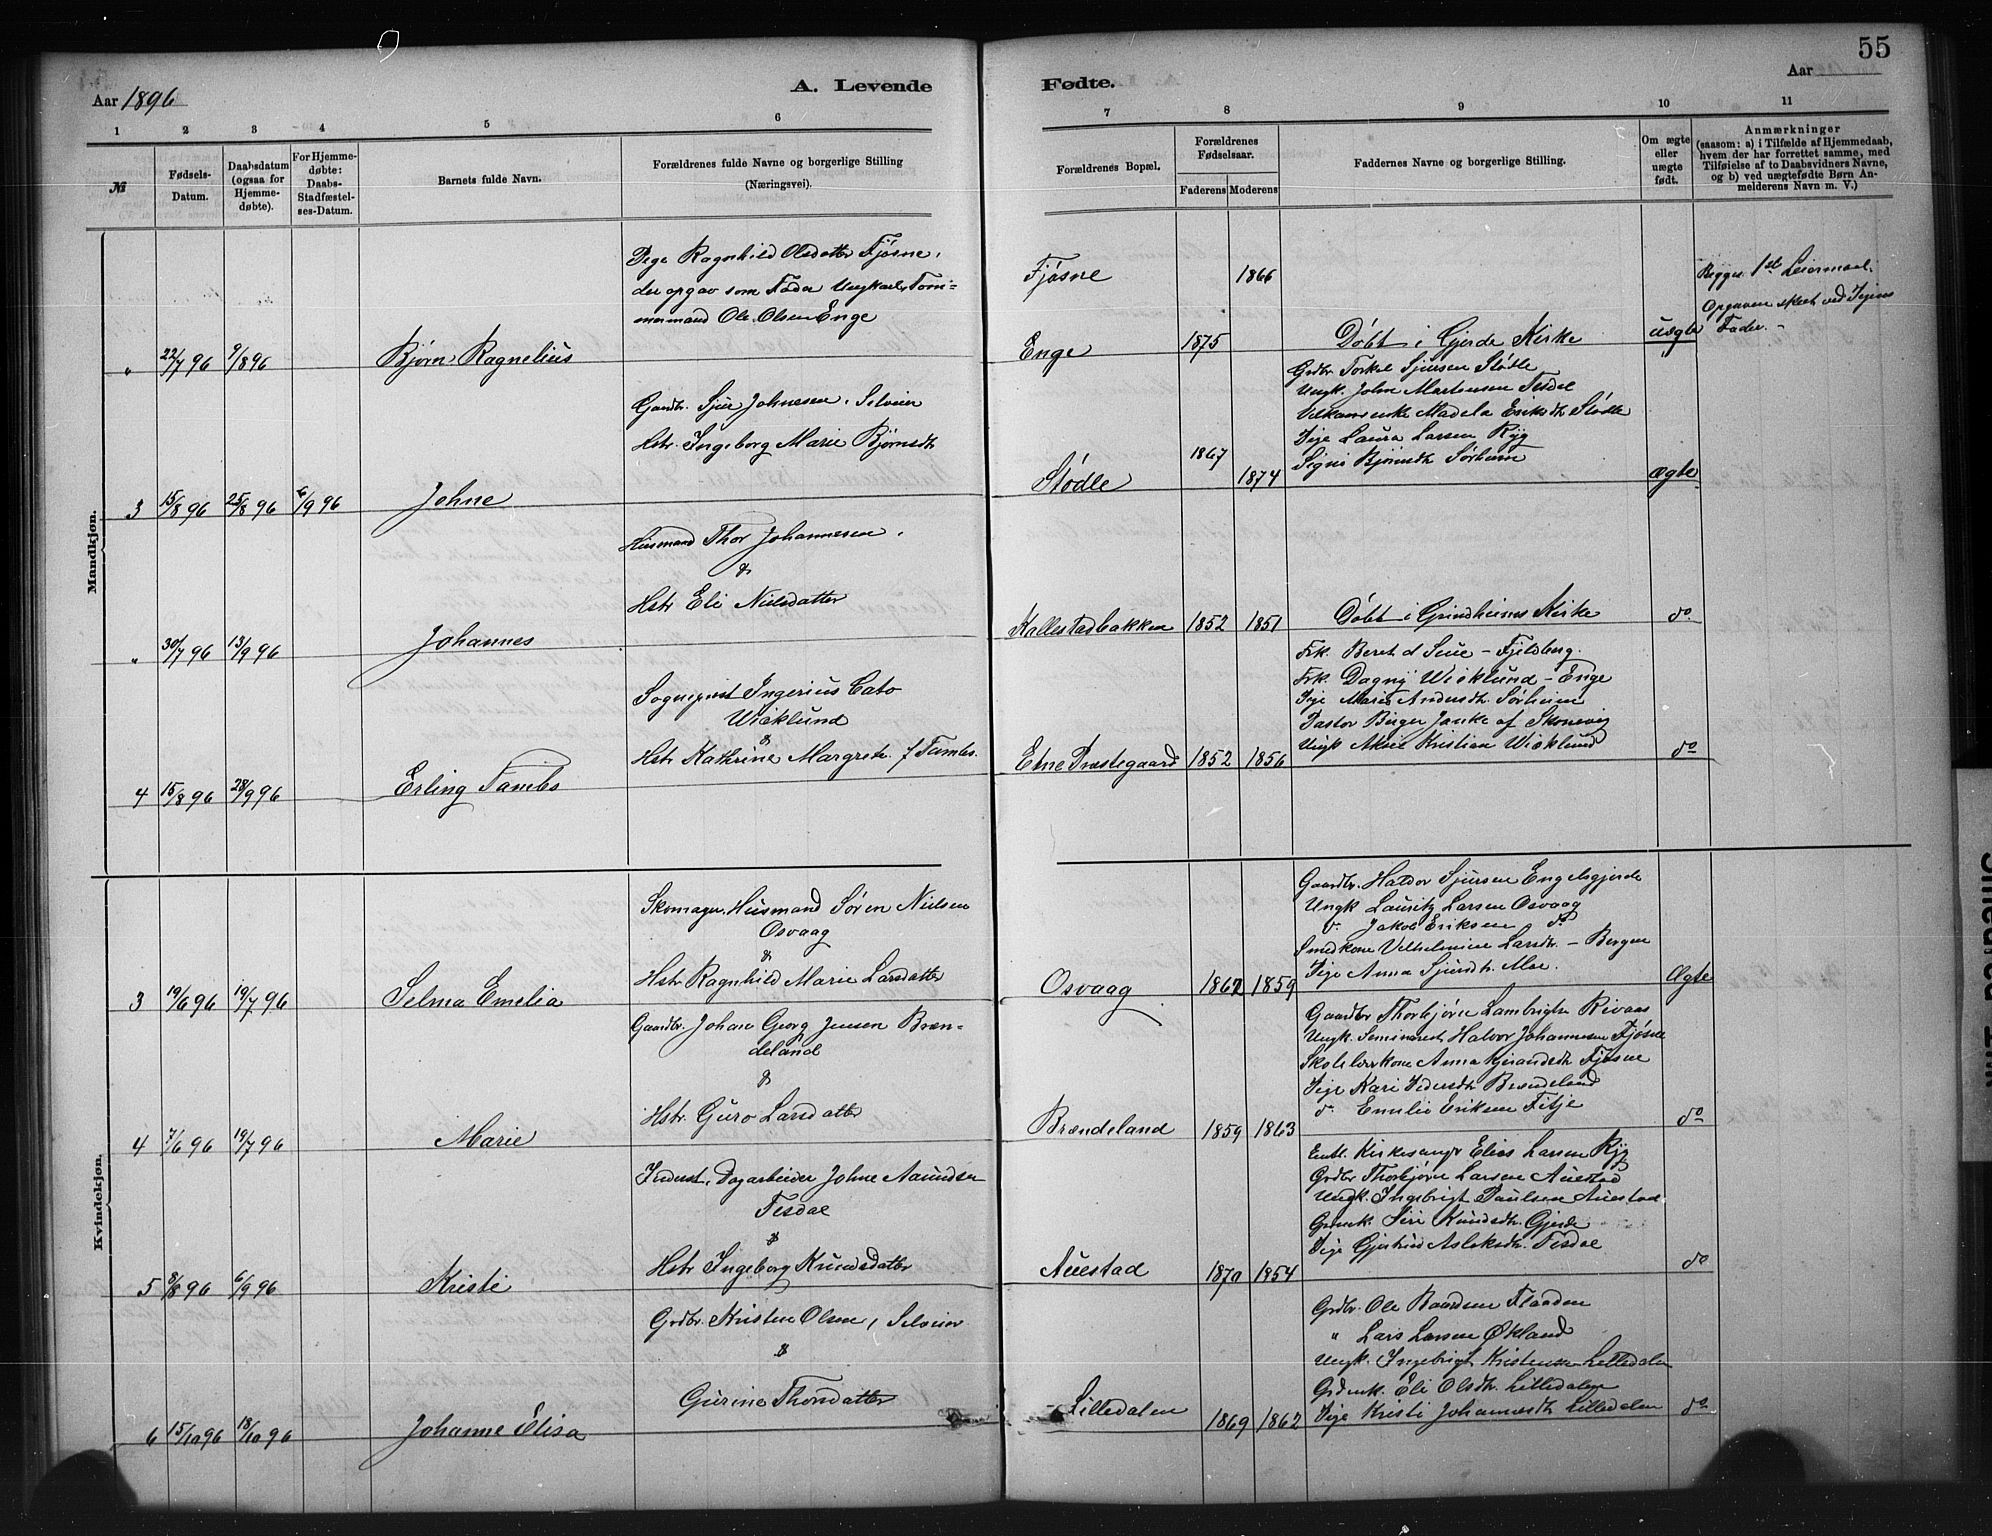 55
Aar 1896
A. Levende Fødte.
Aar
1 2 3 4 5 6 7 8 9 10 11
№
Fødsels-
Datum.
Daabsdatum
(ogsaa for
Hjemme-
døbte).
For Hjemme-
døbte:
Daabs-
Stadfæstel-
ses-Datum.
Barnets fulde Navn.
Forældrenes fulde Navne og borgerlige Stilling
(Næringsvei).
Forældrenes Bopæl.
Forældrenes
Fødselsaar.
Faderens Moderens
Faddernes Navne og borgerlige Stilling.
Om ægte
eller
uægte
født.
Anmærkninger
(saasom: a) i Tilfælde af Hjemmedaab,
hvem der har forrettet samme, med
Tilføielse af to Daabsvidners Navne,
og b) ved uægtefødte Børn An-
melderens Navn m. V.)
Mandkjøn.
" 22/7 96 9/8 96
Bjørn Ragnelius
Pige Ragnhild Olsdatter Fjøsne,
der opgav som Fader Ungkarl, Tøm=
mermand Ole Olsen Enge
Fjøsne 1866
Enge 1875
Døbt i Gjerde Kirke
uægte
Begges 1ste Leiermaal.
Opgaven skeet ved Pigens
Fader. -
3 15/8 96 25/8 96 6/9 96
Johne
Gaardbr. Sjur Johnesen, Selveier
Hstr. Ingeborg Marie Bjørnsdtr
Stødle 1867 1874
Grdbr Torkel Sjursen Stødle
Ungk. John Martensen Tesdal
Madela Eriksdtr Stødle
Pige Laura Larsen Ryg
Signi Bjørnsdtr Sørheim
ægte
" 30/7 96 13/9 96
Johannes
Husmand Thor Johannesen,
&
Hstr Eli Nielsdatter
Kallestadbakken 1852 1851
Døbt i Grindheims Kirke
do
4 15/8 96 28/9 96
Erling Tambs
Sogneprest Ingerius Cato
Wicklund
&
Hstr Kathrine Margrete f Tambs.
Etne Præstegaard 1852 1856
Frk. Beret d Seue - Fjelberg.
Frk. Dagny Wicklund - Enge
Pige Marie Andersdtr Sørheim
Pastor Birger Janke af Skonevig
Ungk Aksel Kristian Wicklund
do
Kvindekjøn.
3 19/6 96 19/7 96
Selma Emelia
Skomager, Husmand Søren Nielsen
Osvaag
&
Hstr Ragnhild Marie Larsdatter
Osvaag 1862 1859
Gaardbr. Haldor Sjursen Engelsgjerde
Ungk Lauritz Larsen Osvaag
do Jakob Eriksen do
Smedkone Velhelmine Larsdtr. - Bergen
Pige Anna Sjursdtr. Moe.
Ægte
4 7/6 96 19/7 96
Marie
Gaardbr. Johan Georg Jensen Bræn-
deland
&
Hstr Guro Larsdatter
Brændeland 1859 1863
Gaardbr Thorbjørn Lambrigtsen Rivaas
Ungk. Seminarist Halvor Johannesen Fjøsne
Skolelærerkone Anna Fjøsne
Pige Kari Pedersdtr Brændeland
do Emilie Eriksen Fitje
do
5 8/8 96 6/9 96
Kristi
Inderst, Dagarbeider Johne Aamundsen
Tesdal
&
Hstr Ingeborg Knudsdatter
Auestad 1870 1854
Kirkesanger Elias Larsen Ryg
Grdbr Thorbjørn Larsen Auestad
Ungk. Ingebrigt Paulsen Auestad
Siri Knudsdtr. Gjerde
Pige Gjertrud Aslaksdtr. Tesdal
do
6 15/10 96 18/10 96
Johanne Elisa
Grdbr. Kristen Olsen, Selveier
&
Gurine Thorsdatter
Lilledalen 1869 1862
Grdbr. Ole Baardsen Flaaden
" Lars Larsen Økland
Ungk. Ingebrigt Kristensen Lilledalen
Eli Olsdtr. Lilledalen
Pige Kristi Johannesdtr Lilledalen
do